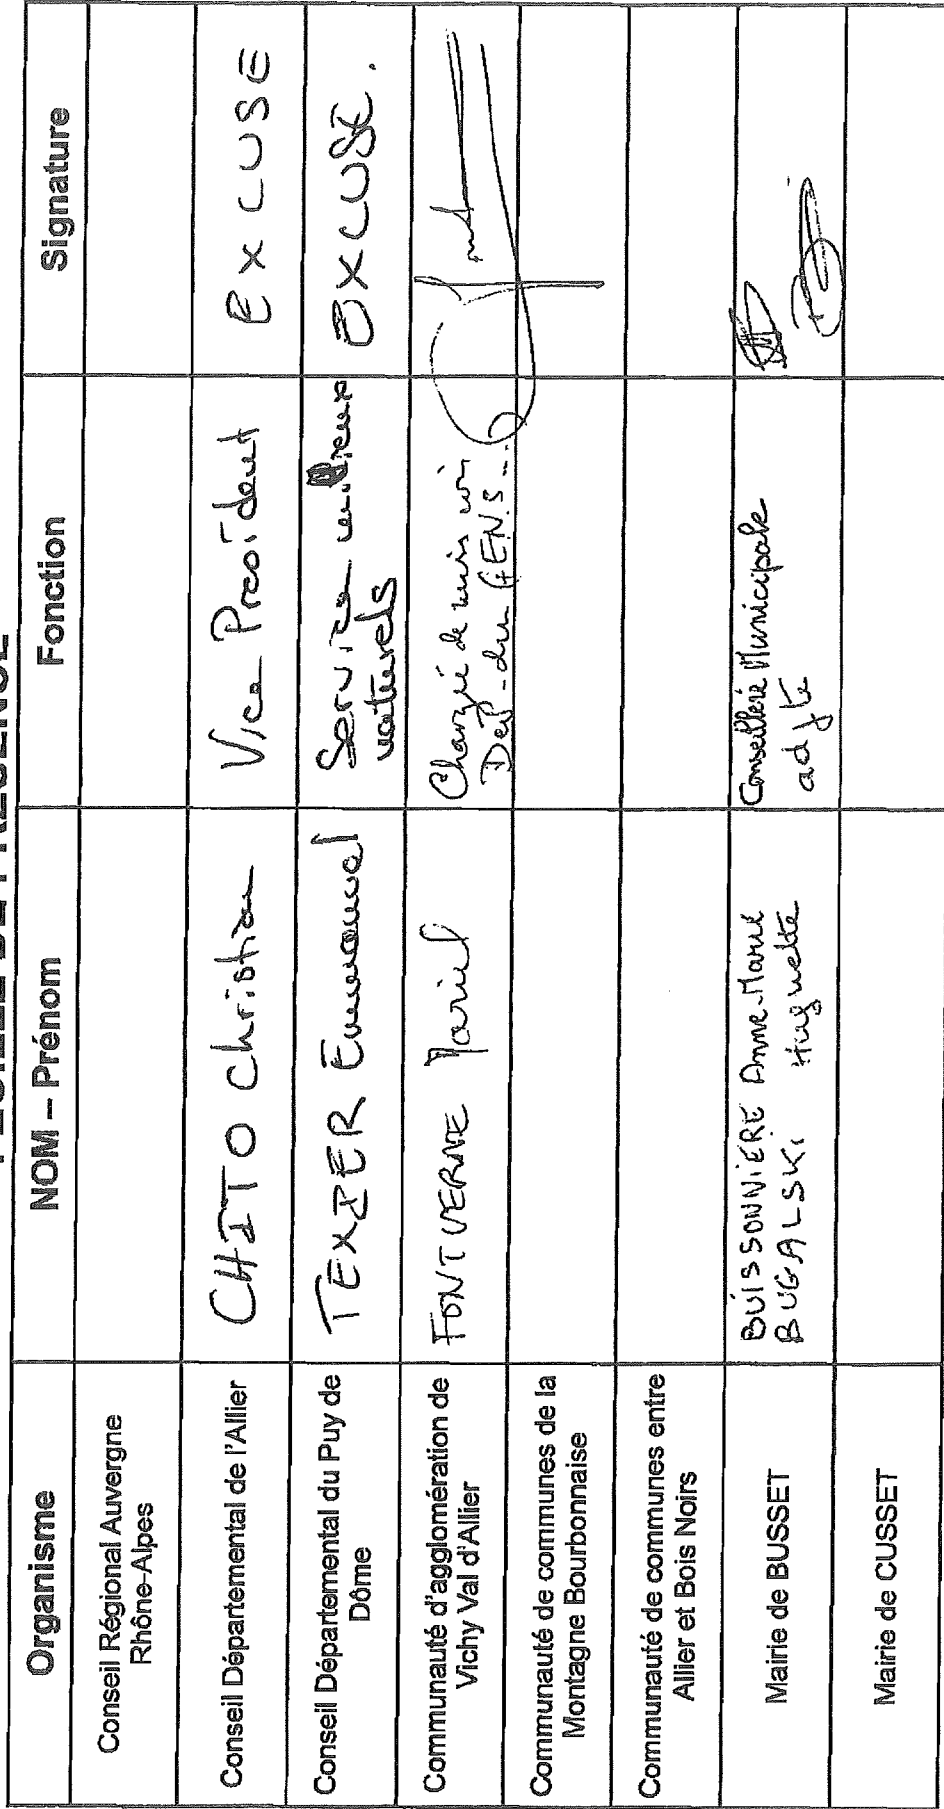 Organisme NOM – Prénom Fonction Signature
Conseil Régional Auvergne
Rhône-Alpes
Conseil Départemental de l'Allier CHITO Christian Vice Président EXCUSE
Conseil Départemental du Puy de
Dôme
TEXIER Emmanuel
Service milieux
naturels
EXCUSE.
Communauté d'agglomération de
Vichy Val d'Allier
FONTVERNE Mariel
Chargé de
Communauté de communes de la
Montagne Bourbonnaise
Communauté de communes entre
Allier et Bois Noirs
Mairie de BUSSET
BUISSONNIÈRE Anne-Marie
BUGALSKI Huguette
Conseillère Municipale
adjte
Mairie de CUSSET